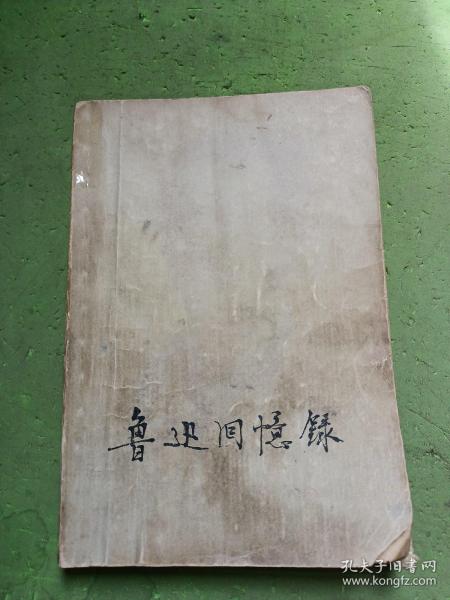 鲁迅回憶録
孔夫子旧书网
www.kongfz.com